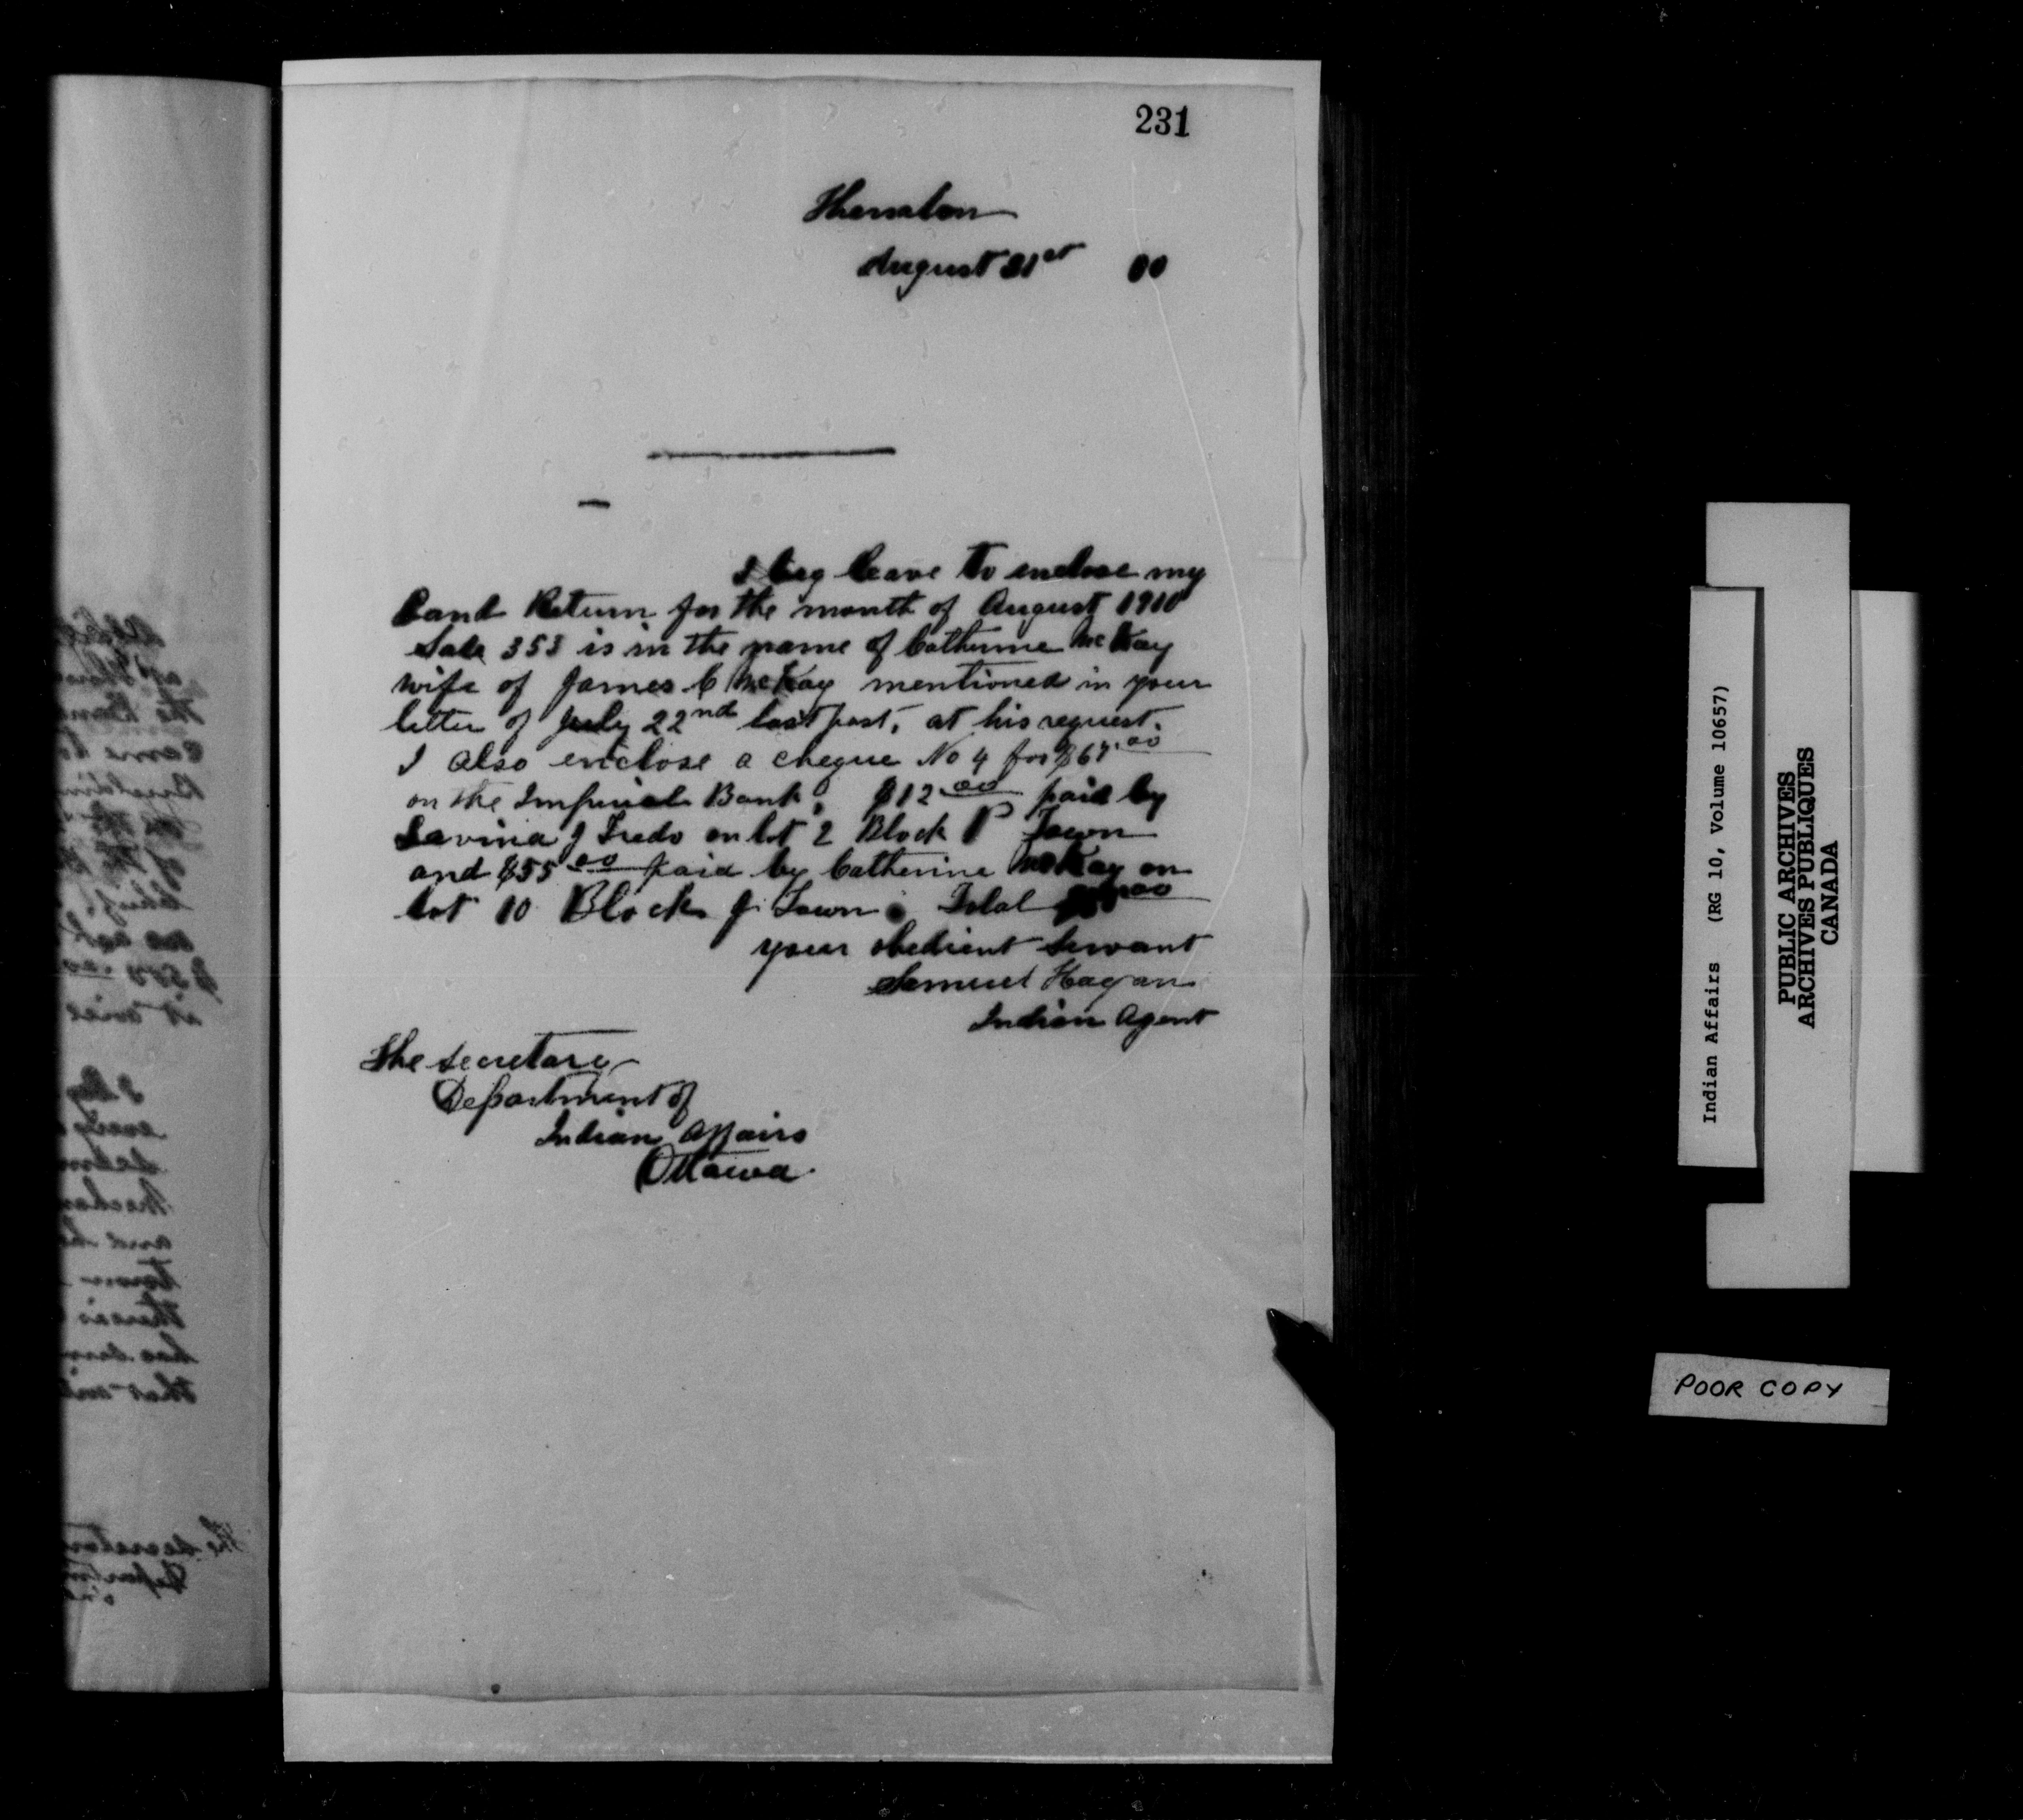 231
Thessalon
August 31st 10
I beg leave to enclose my
Land Return for the month of August 1910
Sale 353 is in the name of Catherine McKay
wife of James C McKay mentioned in your
letter of July 22nd last past, at his request.
I also enclose a cheque No 4 for $67.00
on the Imperial Bank, $12.00 paid by
Lavina J Fredo on lot 2 Block P Town
and $55.00 paid by Catherine McKay on
lot 10 Block J Town. Total
your obedient Servant
Samuel Hagan
Indian Agent
The Secretary
Department of
Indian Affairs
Ottawa.
Indian Affairs (RG 10, Volume 10657)
PUBLIC ARCHIVES
ARCHIVES PUBLIQUES
CANADA
POOR COPY